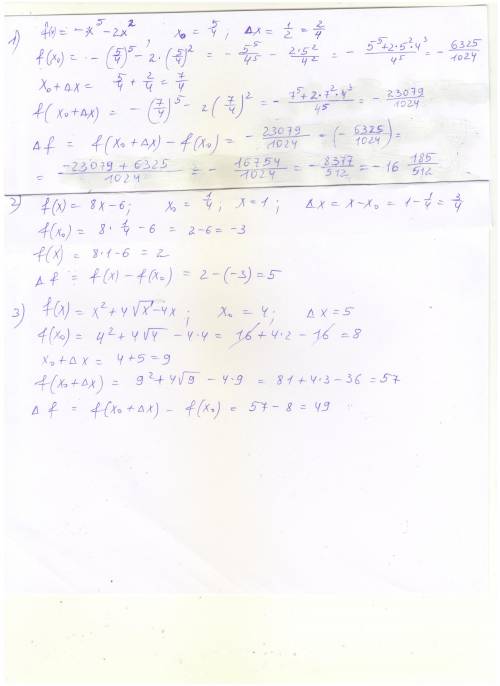 1) f(x) = -x⁵ - 2x², x₀ = 5/4; Δx = 1/2 = 2/4
f(x₀) = -(5/4)⁵ - 2·(5/4)² = - 5⁵/4⁵ - 2·5²/4² = - (5⁵+2·5²·4³)/4⁵ = - 6325/1024
x₀+Δx = 5/4 + 2/4 = 7/4
f(x₀+Δx) = -(7/4)⁵ - 2(7/4)² = - (7⁵+2·7²·4³)/4⁵ = - 23079/1024
Δf = f(x₀+Δx) - f(x₀) = - 23079/1024 - (- 6325/1024) =
= (-23079 + 6325)/1024 = - 16754/1024 = - 8377/512 = -16 185/512
2) f(x) = 8x-6; x₀ = 1/4; x=1; Δx = x-x₀ = 1-1/4 = 3/4
f(x₀) = 8·1/4 - 6 = 2-6 = -3
f(x) = 8·1-6 = 2
Δf = f(x) - f(x₀) = 2-(-3) = 5
3) f(x) = x²+4√x-4x; x₀ = 4; Δx = 5
f(x₀) = 4²+4√4 - 4·4 = 16+4·2-16 = 8
x₀+Δx = 4+5 = 9
f(x₀+Δx) = 9²+4√9 - 4·9 = 81+4·3-36 = 57
Δf = f(x₀+Δx) - f(x₀) = 57-8 = 49